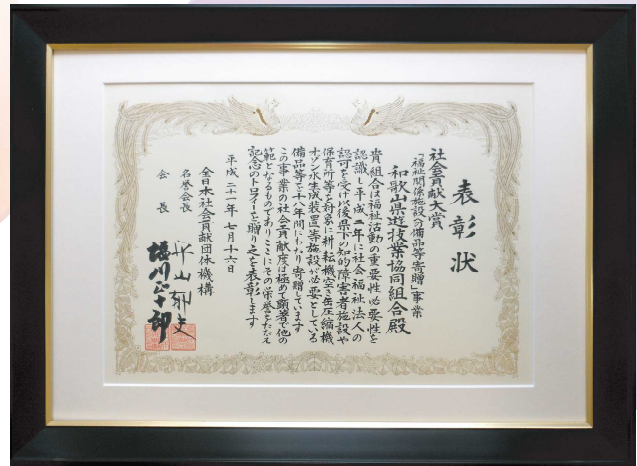 表彰状
社会貢献大賞
「福祉関係施設への備品等寄贈」事業
和歌山県遊技業協同組合殿
貴組合は福祉活動の重要性必要性を
認識し平成二年に社会福祉法人の
認可を受け以後県下の知的障害者施設や
保育所等を対象に耕耘機空き缶圧縮機
オゾン水生成装置等施設が必要としている
備品等を十八年間にわたり寄贈しています
この事業の社会貢献度は極めて顕著で他の
範となるものでありここにその栄誉をたたえ
記念のトロフィーを贈り之を表彰します
平成二十一年七月十六日
全日本社会貢献団体機構
名誉会長 平山郁夫
会長